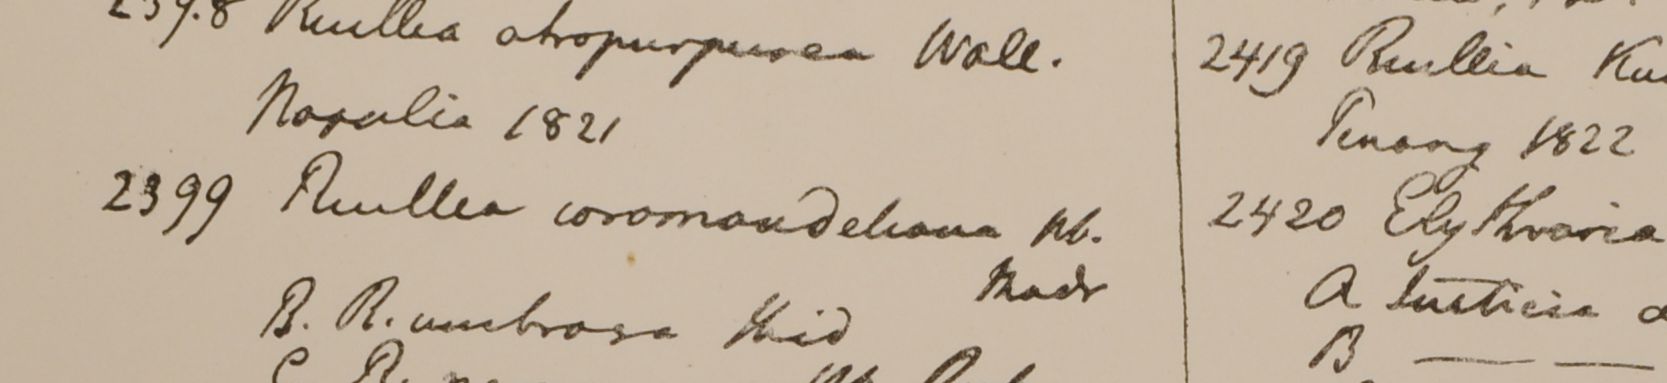 2398 Ruellia atropurpurea Wall.
Napalia 1821
2399 Ruellia coromandeliana Hb.
Madr
B. R. umbrosa Hb id
C R.
2419 Ruellia
Penang 1822
2420 Elythraria
A Justicia
B — —